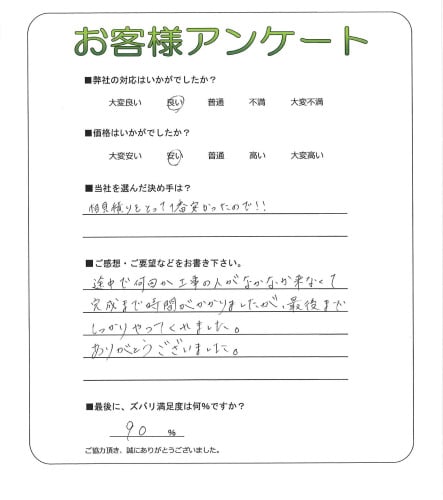 お客様アンケート
■弊社の対応はいかがでしたか?
大変良い 良い 普通 不満 大変不満
■価格はいかがでしたか?
大変安い 安い 普通 高い 大変高い
■当社を選んだ決め手は?
相見積りをとって1番安かったので!!
■ご感想・ご要望などをお書き下さい。
途中で何回か工事の人がなかなか来なくて
完成まで時間がかかりましたが、最後まで
しっかりやってくれました。
ありがとうございました。
■最後に、ズバリ満足度は何%ですか?
90 %
ご協力頂き、誠にありがとうございました。